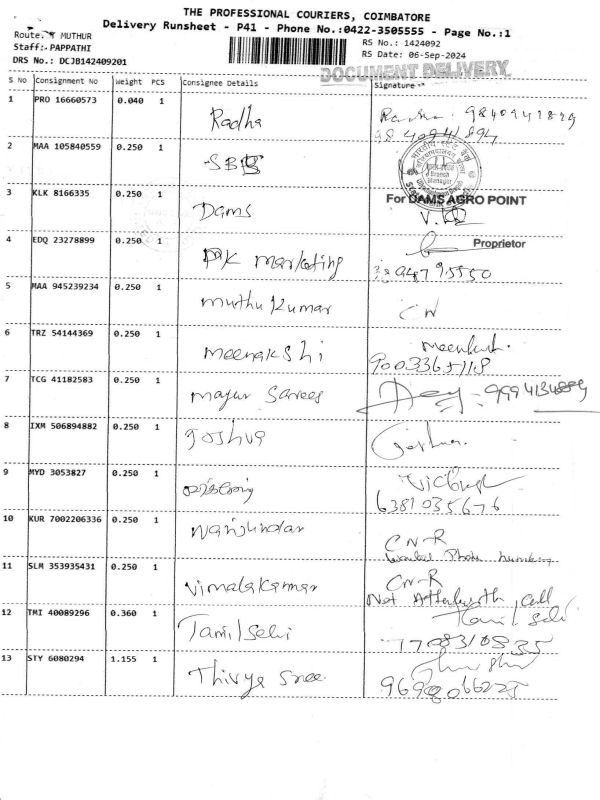 THE PROFESSIONAL COURIERS, COIMBATORE
Delivery Runsheet - P41 - Phone No.:0422-3505555 - Page No.:1
Route: MUTHUR
Staff: PAPPATHI
DRS No.: DCJB142409201
RS No.: 1424092
RS Date: 06-Sep-2024
DOCUMENT DELIVERY
S No Consignment No Weight PCS Consignee Details Signature
1 PRO 16660573 0.040 1 Radha
2 MAA 105840559 0.250 1 SBI
Branch Manager
3 KLK 8166335 0.250 1 Dams
For DAMS AGRO POINT
Proprietor
4 EDQ 23278899 0.250 1 marketing
5 MAA 945239234 0.250 1 muthu kumar
6 TRZ 54144369 0.250 1 meenakshi
9003365118
7 TCG 41182583 0.250 1 Sarees
8 IXM 506894882 0.250 1 Joshva
Joshva
9 MYD 3053827 0.250 1
6381035676
10 KUR 7002206336 0.250 1 Nanjundan
CN-R
11 SLM 353935431 0.250 1 Vimalakannan
CN-R
Not call
12 TMI 40089296 0.360 1 Tamil Selvi
Tamil Selvi
13 STY 6080294 1.155 1 Thivya Sree